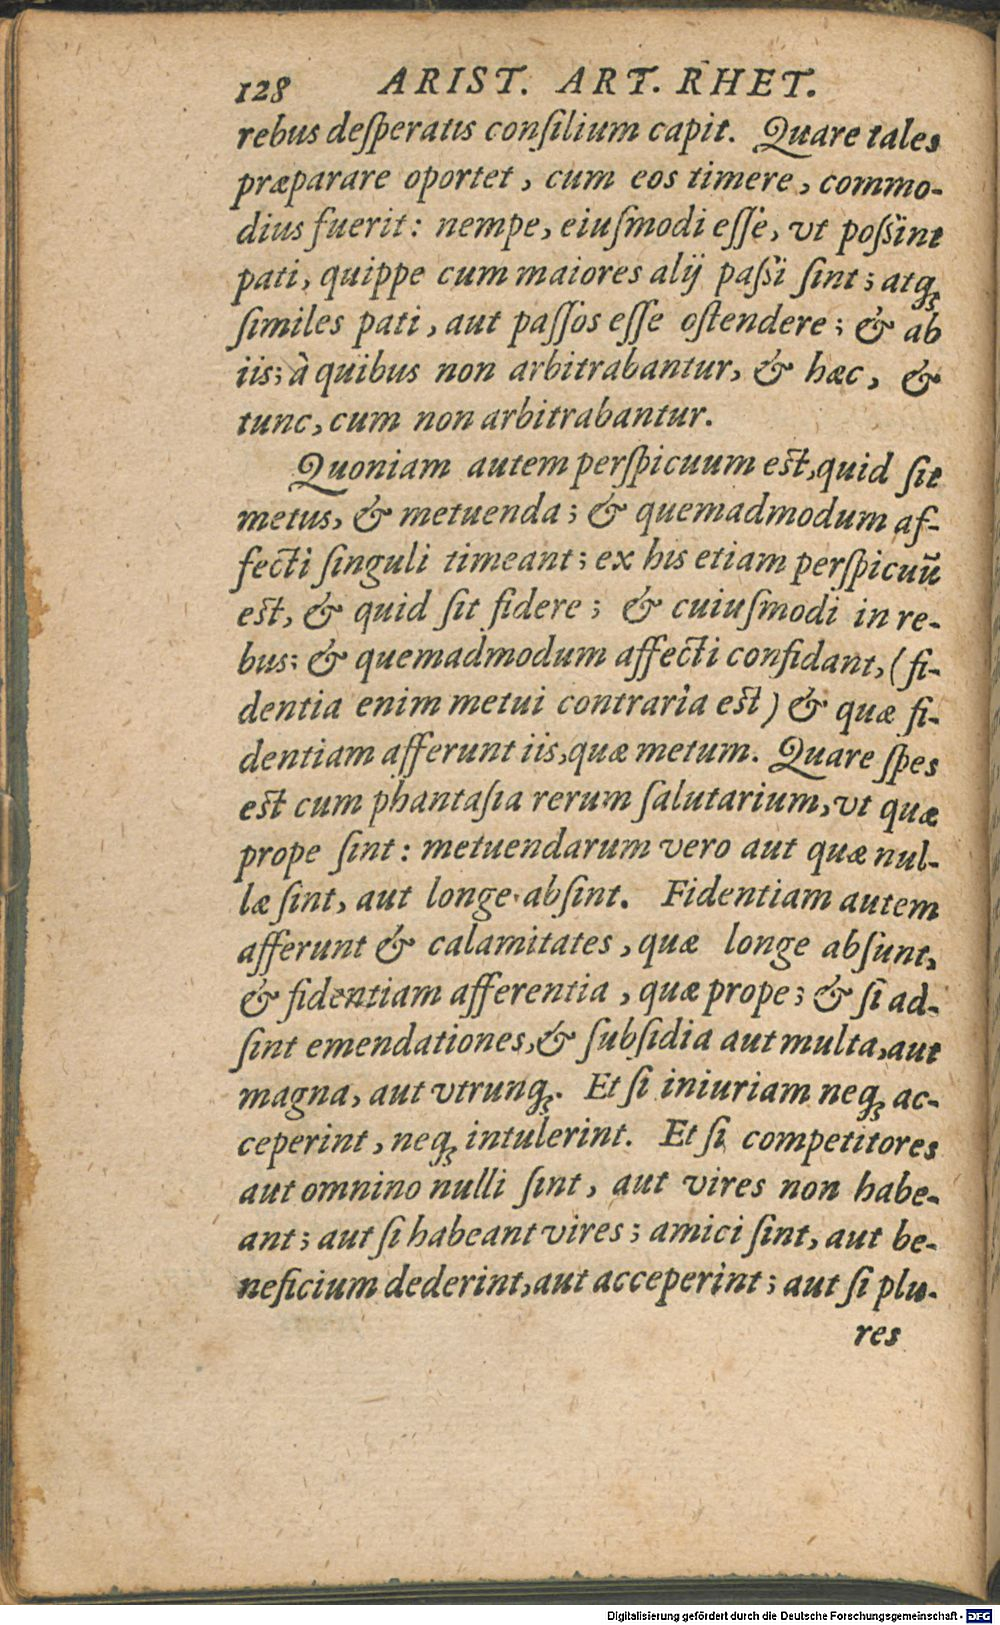 128 ARIST. ART. RHET.
rebus deſperatis conſilium capit. Quare tales
præparare oportet, cum eos timere, commo-
dius fuerit: nempe, eiuſmodi eſſe, vt poſsint
pati, quippe cum maiores alij paſsi ſint; atq;
ſimiles pati, aut paſſos eſſe oſtendere; & ab
iis; à quibus non arbitrabantur, & hæc, &
tunc, cum non arbitrabantur.
Quoniam autem perſpicuum eſt, quid ſit
metus, & metuenda; & quemadmodum af-
fecti ſinguli timeant; ex his etiam perſpicuũ
eſt, & quid ſit fidere; & cuiuſmodi in re-
bus; & quemadmodum affecti confidant, (fi-
dentia enim metui contraria eſt) & quæ fi-
dentiam afferunt iis, quæ metum. Quare ſpes
eſt cum phantaſia rerum ſalutarium, vt quæ
prope ſint: metuendarum vero aut quæ nul-
læ ſint, aut longe abſint. Fidentiam autem
afferunt & calamitates, quæ longe abſunt,
& fidentiam afferentia, quæ prope; & ſi ad-
ſint emendationes, & ſubſidia aut multa, aut
magna, aut vtrunq;. Et ſi iniuriam neq; ac-
ceperint, neq; intulerint. Et ſi competitores
aut omnino nulli ſint, aut vires non habe-
ant; aut ſi habeant vires; amici ſint, aut be-
neficium dederint, aut acceperint; aut ſi plu-
res
Digitalisierung gefördert durch die Deutsche Forschungsgemeinschaft - DFG